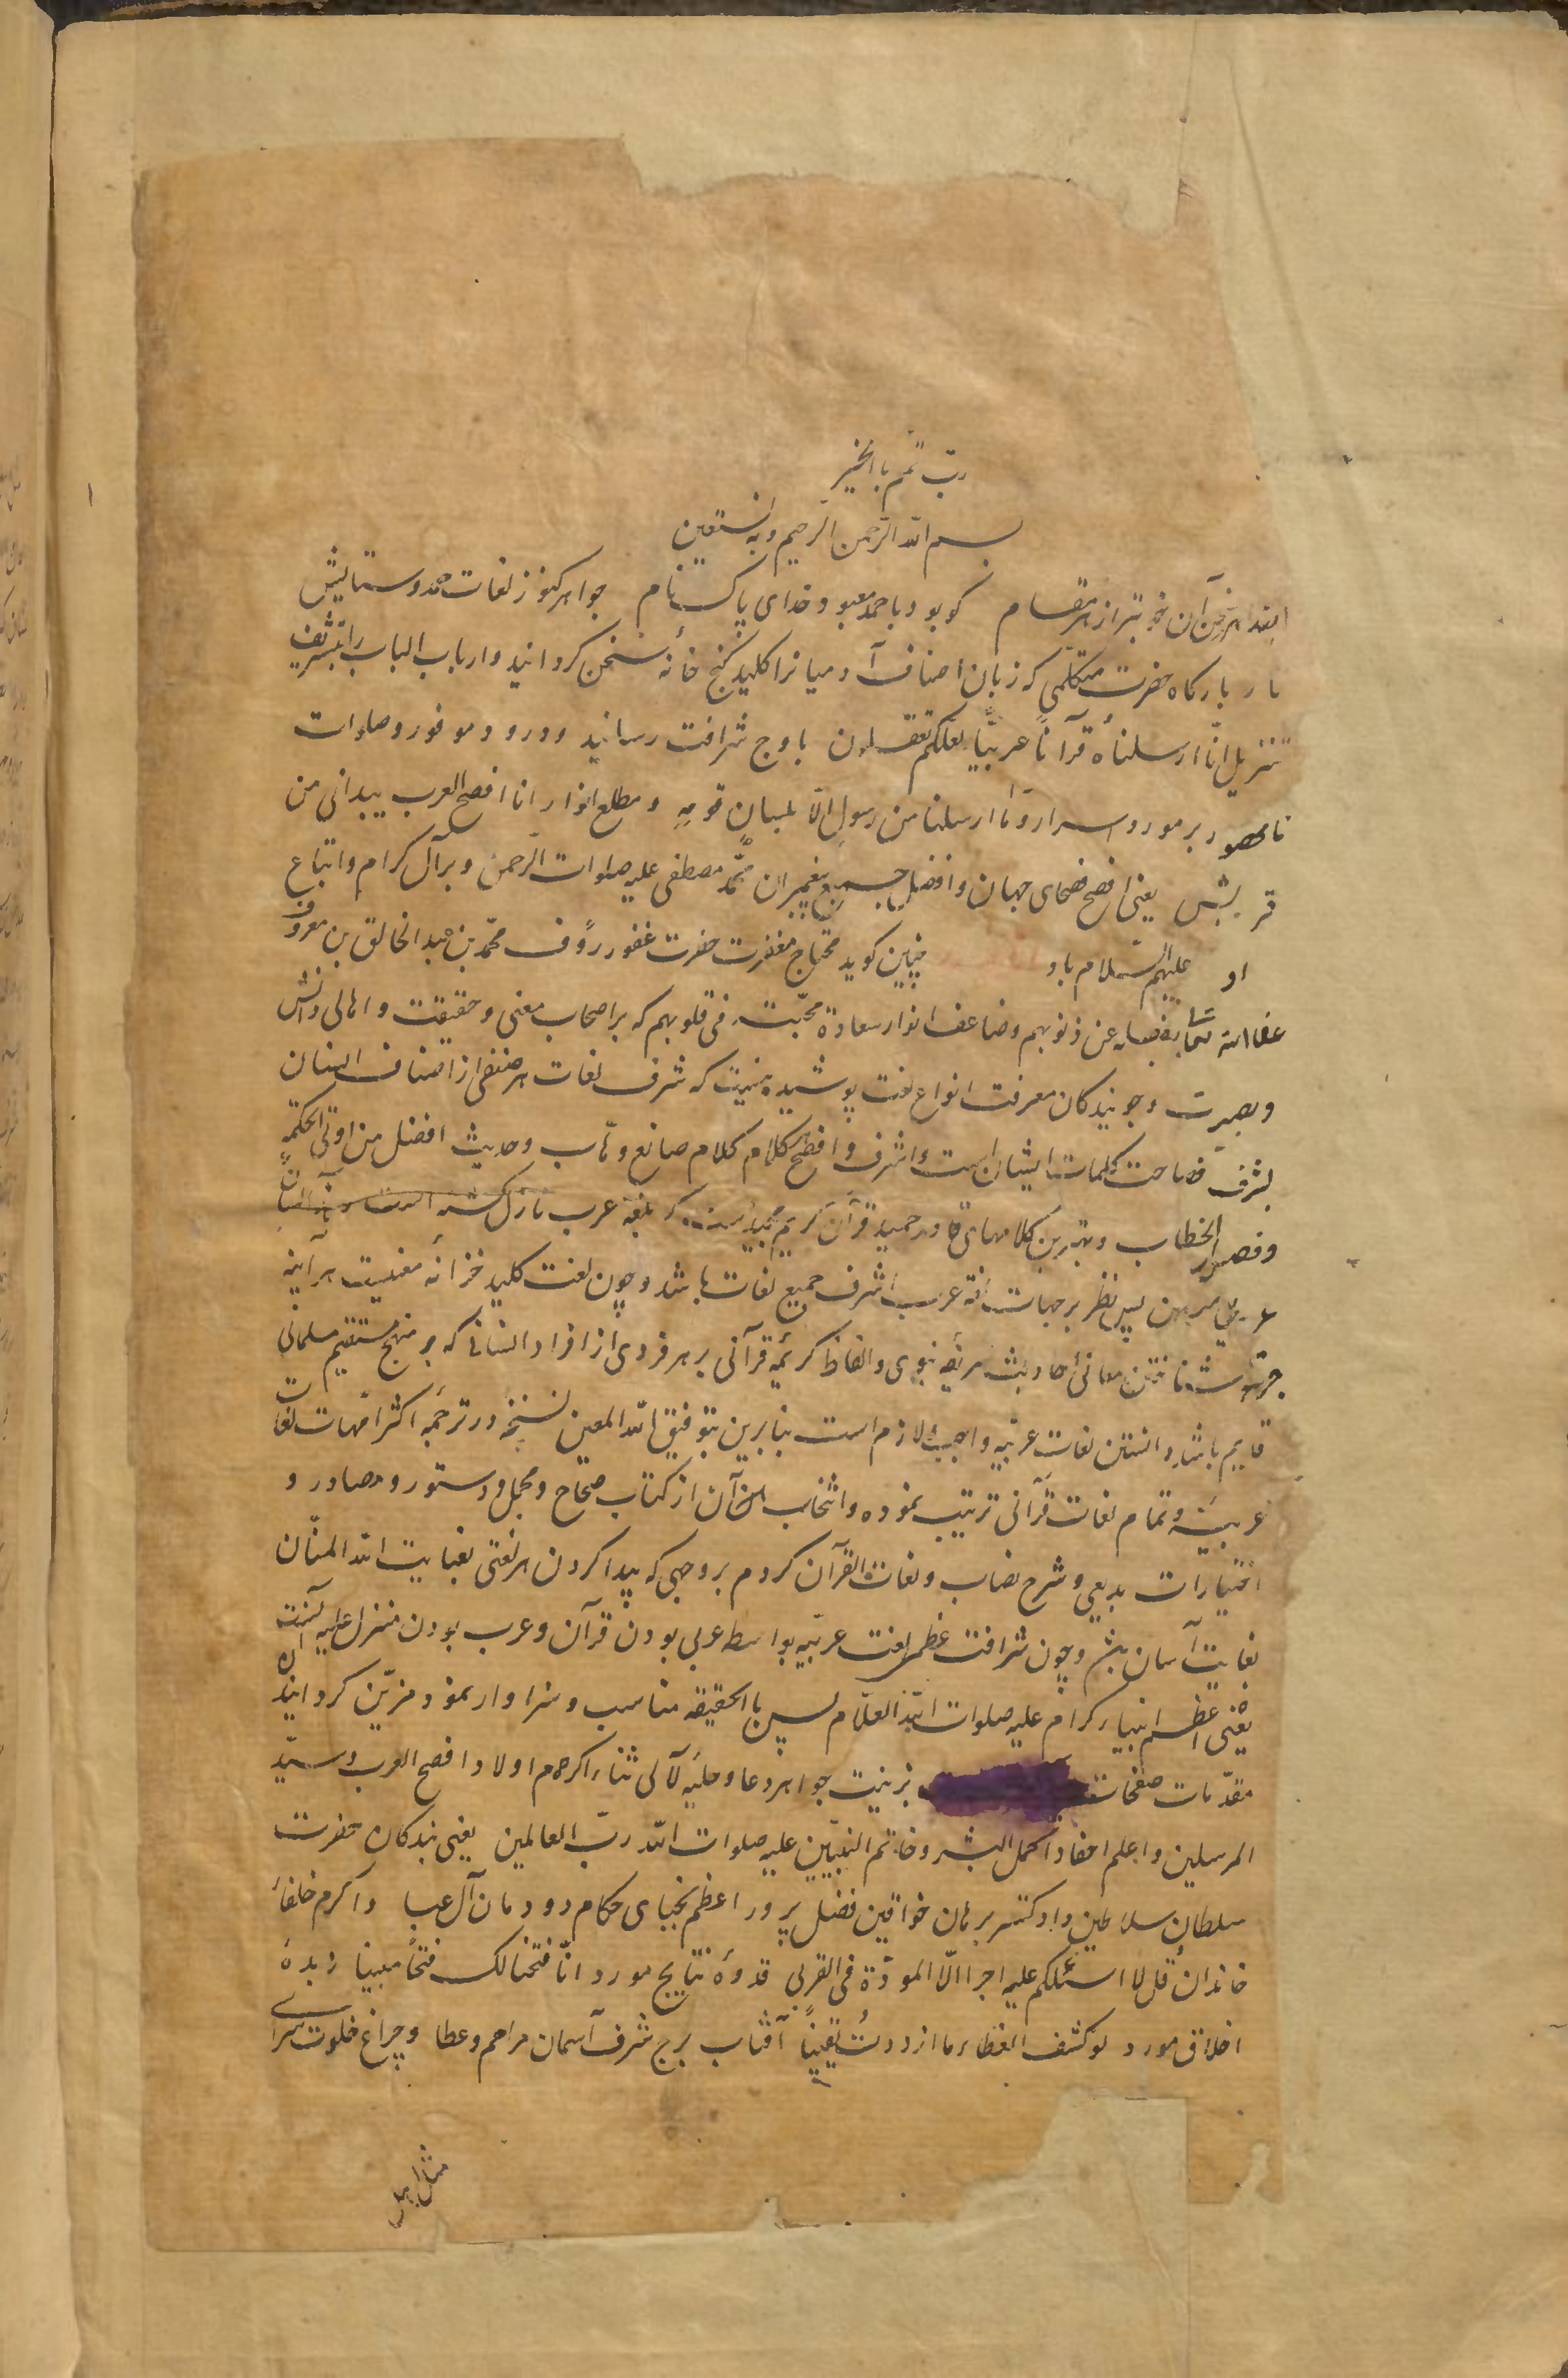 ربّ تمّم بالخیر
بسم الله الرّحمن الرّحیم و به نستعین
ابتداء هر سخن آن خوبتر از هر مقام کو بود با حمد معبود خدای پاک نام جواهر کنوز لغات حمد و ستایش
بارگاه حضرت متکلّمی که زبان اصناف آدمیانرا کلید گنج خانهٔ سخن گردانید و ارباب الباب را بتشریف
تنزیل انّا ارسلناه قرآناً عربیّاً لعلّکم تعقلون باوج شرافت رسانید و درود موفور و صلوات
نامحصور بر مورد اسرار و ما ارسلنا من رسول الّا بلسان قومهِ و مطلع انوار انا افصح العرب بیدانی من
قریش یعنی افصح فصحای جهان و افضل جمیع پیغمبران محمّد مصطفی علیه صلوات الرّحمن و بر آل کرام و اتباع
او علیهم السّلام باد چنین گوید محتاج مغفرت حضرت غفور رؤف محمّد بن عبد الخالق بن معروف
عفا الله تعالی بفضله عن ذنوبهم و ضاعف انوار سعادة محبّته فی قلوبهم که بر اصحاب معنی و حقیقت و اهالی دانش
و بصیرت و جویندکان معرفت انواع لغت پوشیده نیست که شرف لغات هر صنفی از اصناف انسان
بشرف فصاحت کلمات ایشان است و اشرف و افصح کلام کلام صانع وهّاب و حدیث افضل من اوتی الحکمة
و فصل الخطاب و بهترین کلامهای قادر حمید قرآن کریم مجید است که بلغة عرب نازل گشته است
عربیّ مبین پس نظر برجهات لغة عرب اشرف جمیع لغات باشد و چون لغت کلید خزانهٔ معنیست هرآینه
جهت شناختن معانی احادیث شریفهٔ نبوی و الفاظ کریمهٔ قرآنی بر هر فردی از افراد انسانی که بر منهج مستقیم مسلمانی
قایم باشد دانستن لغات عربیّه واجب و لازم است بنابرین بتوفیق الله المعین نسخهٔ در ترجمهٔ اکثر امّهات لغات
عربیّه و تمام لغات قرآنی ترتیب نموده و انتخاب آن از کتاب صحاح و مجمل و دستور و مصادر و
اختیارات بدیعی و شرح نصاب و لغات القرآن کردم بروجهی که پیدا کردن هر لغتی بعنایت الله المنّان
بغایت آسان باشد و چون شرافت عظمی لغت عربیّه بواسطه عربی بودن قرآن و عرب بودن منزل علیه آنست
یعنی اعظم انبیاء کرام علیه صلوات الله العلّام پس بالحقیقه مناسب و سزاوار نمود مزیّن کردانیدن
مقدّمات صفحات بزینت جواهر دعا و حلیهٔ لآلی ثناء اکرم اولاد افصح العرب و سیّد
المرسلین و اعلم احفاد اکمل البشر و خاتم النبیّین علیه صلوات الله ربّ العالمین یعنی بندکان حضرت
سلطان سلاطین دادگستر برهان خواقین فضل پرور اعظم نجبای حکام دودمان آل عبا و اکرم خلفاء
خاندان قل لا اسئلکم علیه اجراً الّا المودّة فی القربی قدوهٔ نتایج مورد انّا فتحنا لک فتحاً مبینا زبدهٔ
اخلاق مورد لو کشف الغطاء ما ازددتُ یقیناً آفتاب برج شرف آسمان مراحم و عطا و چراغ خلوت سرای